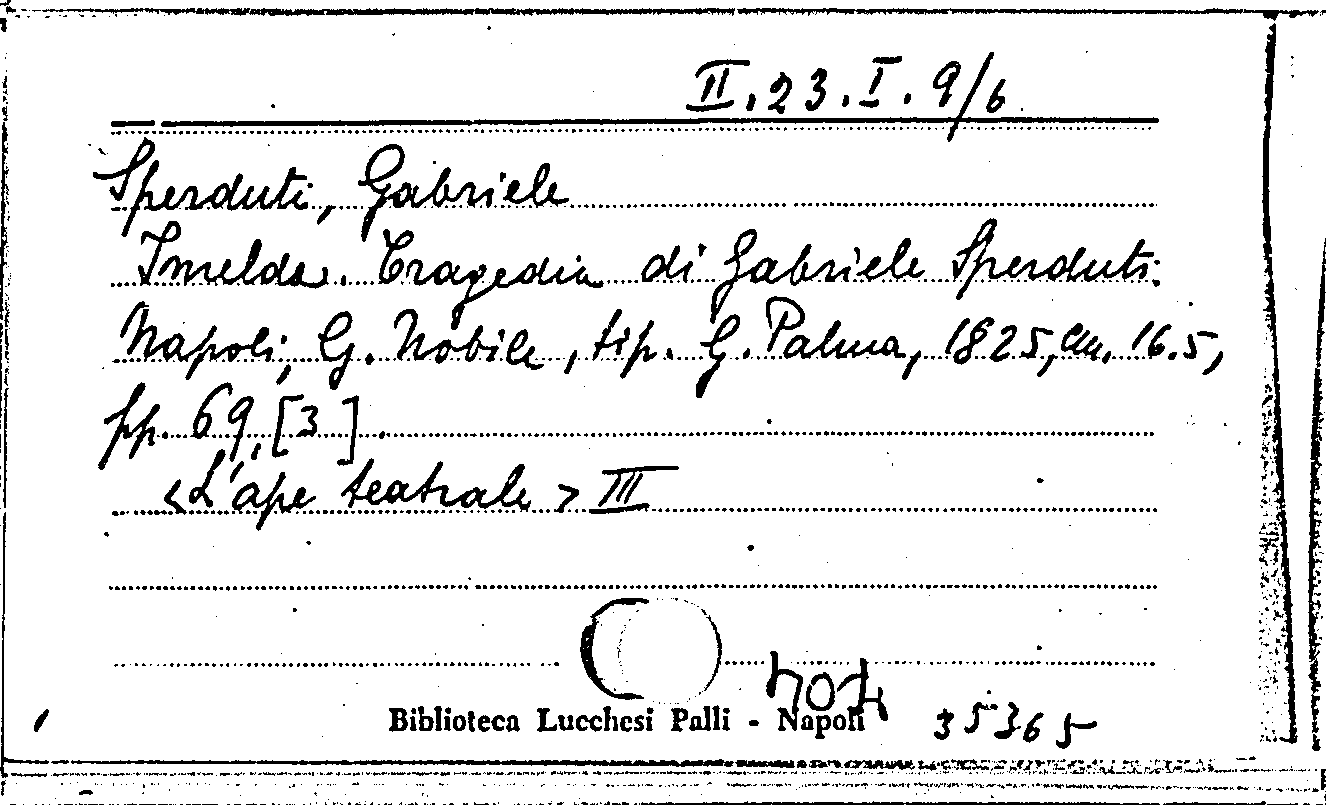 II.23.I.9/6
Sperduti, Gabriele
Imelda. Tragedia di Gabriele Sperduti.
Napoli, G. Nobile, tip. G. Palma, 1825, cm. 16.5,
pp. 69, [3].
<L'ape teatrale> III
404
Biblioteca Lucchesi Palli - Napoli
35365